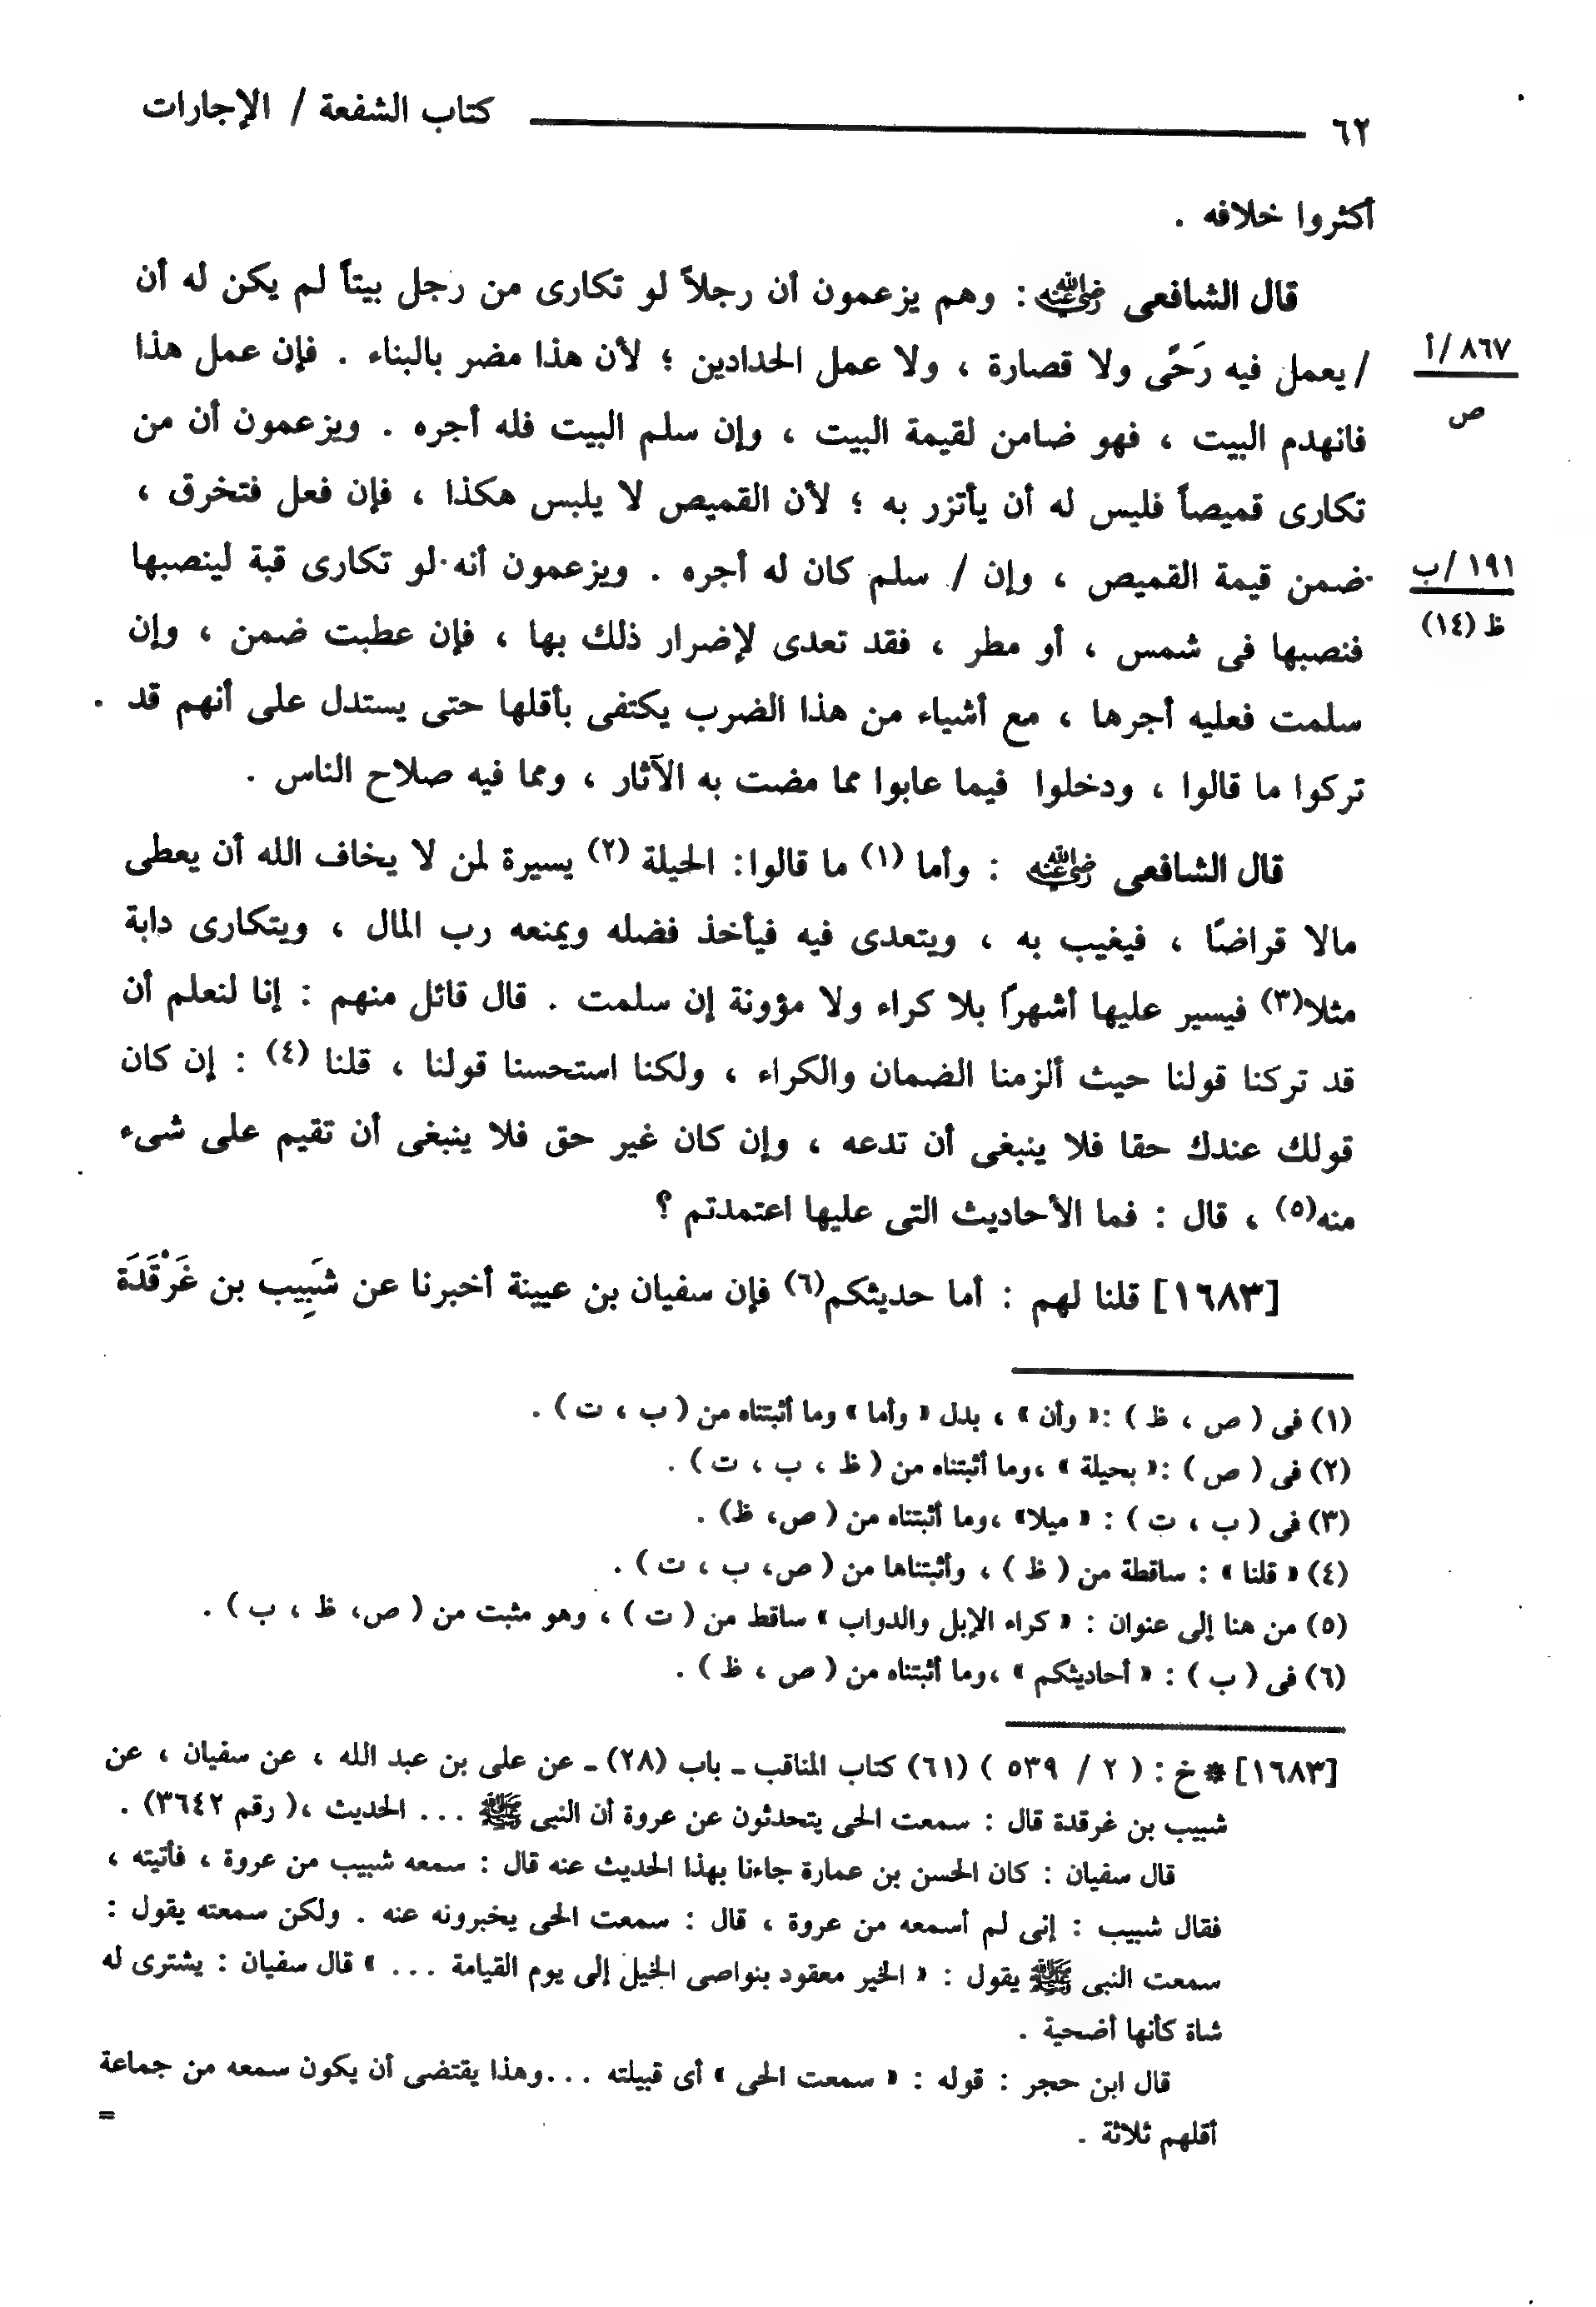 ٦٢ كتاب الشفعة / الإجارات
أكثروا خلافه .
قال الشافعى رضي الله عنه : وهم يزعمون أن رجلاً لو تكارى من رجل بيتاً لم يكن له أن
/ يعمل فيه رَحًى ولا قصارة ، ولا عمل الحدادين ؛ لأن هذا مضر بالبناء . فإن عمل هذا
٨٦٧ /أ
ص
فانهدم البيت ، فهو ضامن لقيمة البيت ، وإن سلم البيت فله أجره . ويزعمون أن من
تكارى قميصاً فليس له أن يأتزر به ؛ لأن القميص لا يلبس هكذا ، فإن فعل فتخرق ،
ضمن قيمة القميص ، وإن / سلم كان له أجره . ويزعمون أنه لو تكارى قبة لينصبها
١٩١ /ب
ظ (١٤)
فنصبها فى شمس ، أو مطر ، فقد تعدى لإضرار ذلك بها ، فإن عطبت ضمن ، وإن
سلمت فعليه أجرها ، مع أشياء من هذا الضرب يكتفى بأقلها حتى يستدل على أنهم قد
تركوا ما قالوا ، ودخلوا فيما عابوا مما مضت به الآثار ، ومما فيه صلاح الناس .
قال الشافعى رضي الله عنه : وأما (١) ما قالوا: الحيلة (٢) يسيرة لمن لا يخاف الله أن يعطى
مالا قراضًا ، فيغيب به ، ويتعدى فيه فيأخذ فضله ويمنعه رب المال ، ويتكارى دابة
مثلا(٣) فيسير عليها أشهراً بلا كراء ولا مؤونة إن سلمت . قال قائل منهم : إنا لنعلم أن
قد تركنا قولنا حيث ألزمنا الضمان والكراء ، ولكنا استحسنا قولنا ، قلنا (٤) : إن كان
قولك عندك حقا فلا ينبغى أن تدعه ، وإن كان غير حق فلا ينبغى أن تقيم على شىء
منه(٥) ، قال : فما الأحاديث التى عليها اعتمدتم ؟
[١٦٨٣] قلنا لهم : أما حديثكم(٦) فإن سفيان بن عيينة أخبرنا عن شَبِيب بن غَرْقَدَة
(١) فى ( ص ، ظ ) :« وأن » ، بدل « وأما » وما أثبتناه من ( ب ، ت ) .
(٢) فى ( ص ) :« بحيلة » ،وما أثبتناه من ( ظ ، ب ، ت ) .
(٣) فى ( ب ، ت ) : « ميلا» ،وما أثبتناه من ( ص، ظ) .
(٤) « قلنا » : ساقطة من ( ظ ) ، وأثبتناها من ( ص، ب ، ت ) .
(٥) من هنا إلى عنوان : « كراء الإبل والدواب » ساقط من ( ت ) ، وهو مثبت من ( ص، ظ ، ب ) .
(٦) فى ( ب ) : « أحاديثكم » ،وما أثبتناه من ( ص ، ظ ) .
[١٦٨٣] * خ : ( ٢ / ٥٣٩ ) (٦١) كتاب المناقب ـ باب (٢٨) ـ عن على بن عبد الله ، عن سفيان ، عن
شبيب بن غرقدة قال : سمعت الحى يتحدثون عن عروة أن النبى ﷺ ... الحديث ،( رقم ٣٦٤٢) .
قال سفيان : كان الحسن بن عمارة جاءنا بهذا الحديث عنه قال : سمعه شبيب من عروة ، فأتيته ،
فقال شبيب : إنى لم أسمعه من عروة ، قال : سمعت الحى يخبرونه عنه . ولكن سمعته يقول :
سمعت النبى ﷺ يقول : « الخير معقود بنواصى الخيل إلى يوم القيامة ... » قال سفيان : يشترى له
شاة كأنها أضحية .
قال ابن حجر : قوله : « سمعت الحى » أى قبيلته ...وهذا يقتضى أن يكون سمعه من جماعة
أقلهم ثلاثة .
=